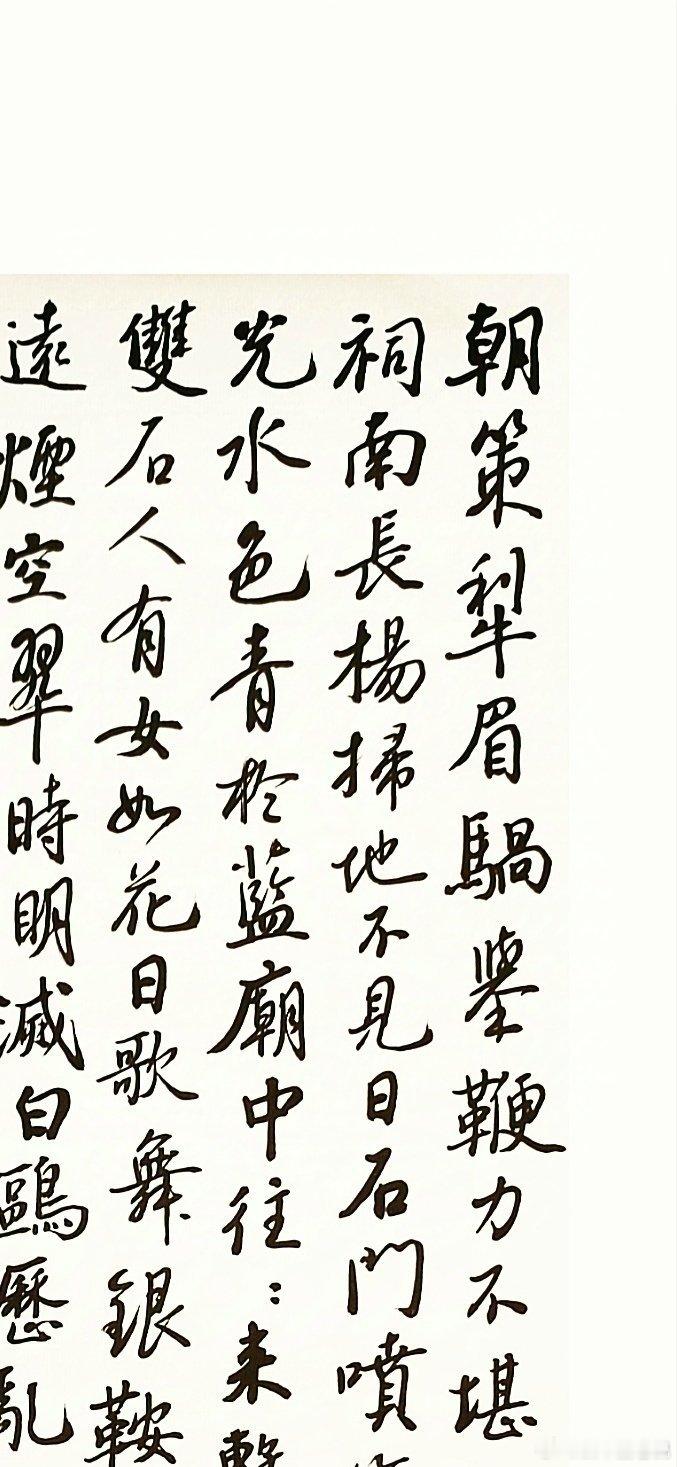 朝策犁眉騧舉鞭力不堪
祠南長楊掃地不見日石門噴
光水色青於藍廟中往々来
雙石人有女如花日歌舞銀鞍
遠煙空翠時明滅白鷗歷亂